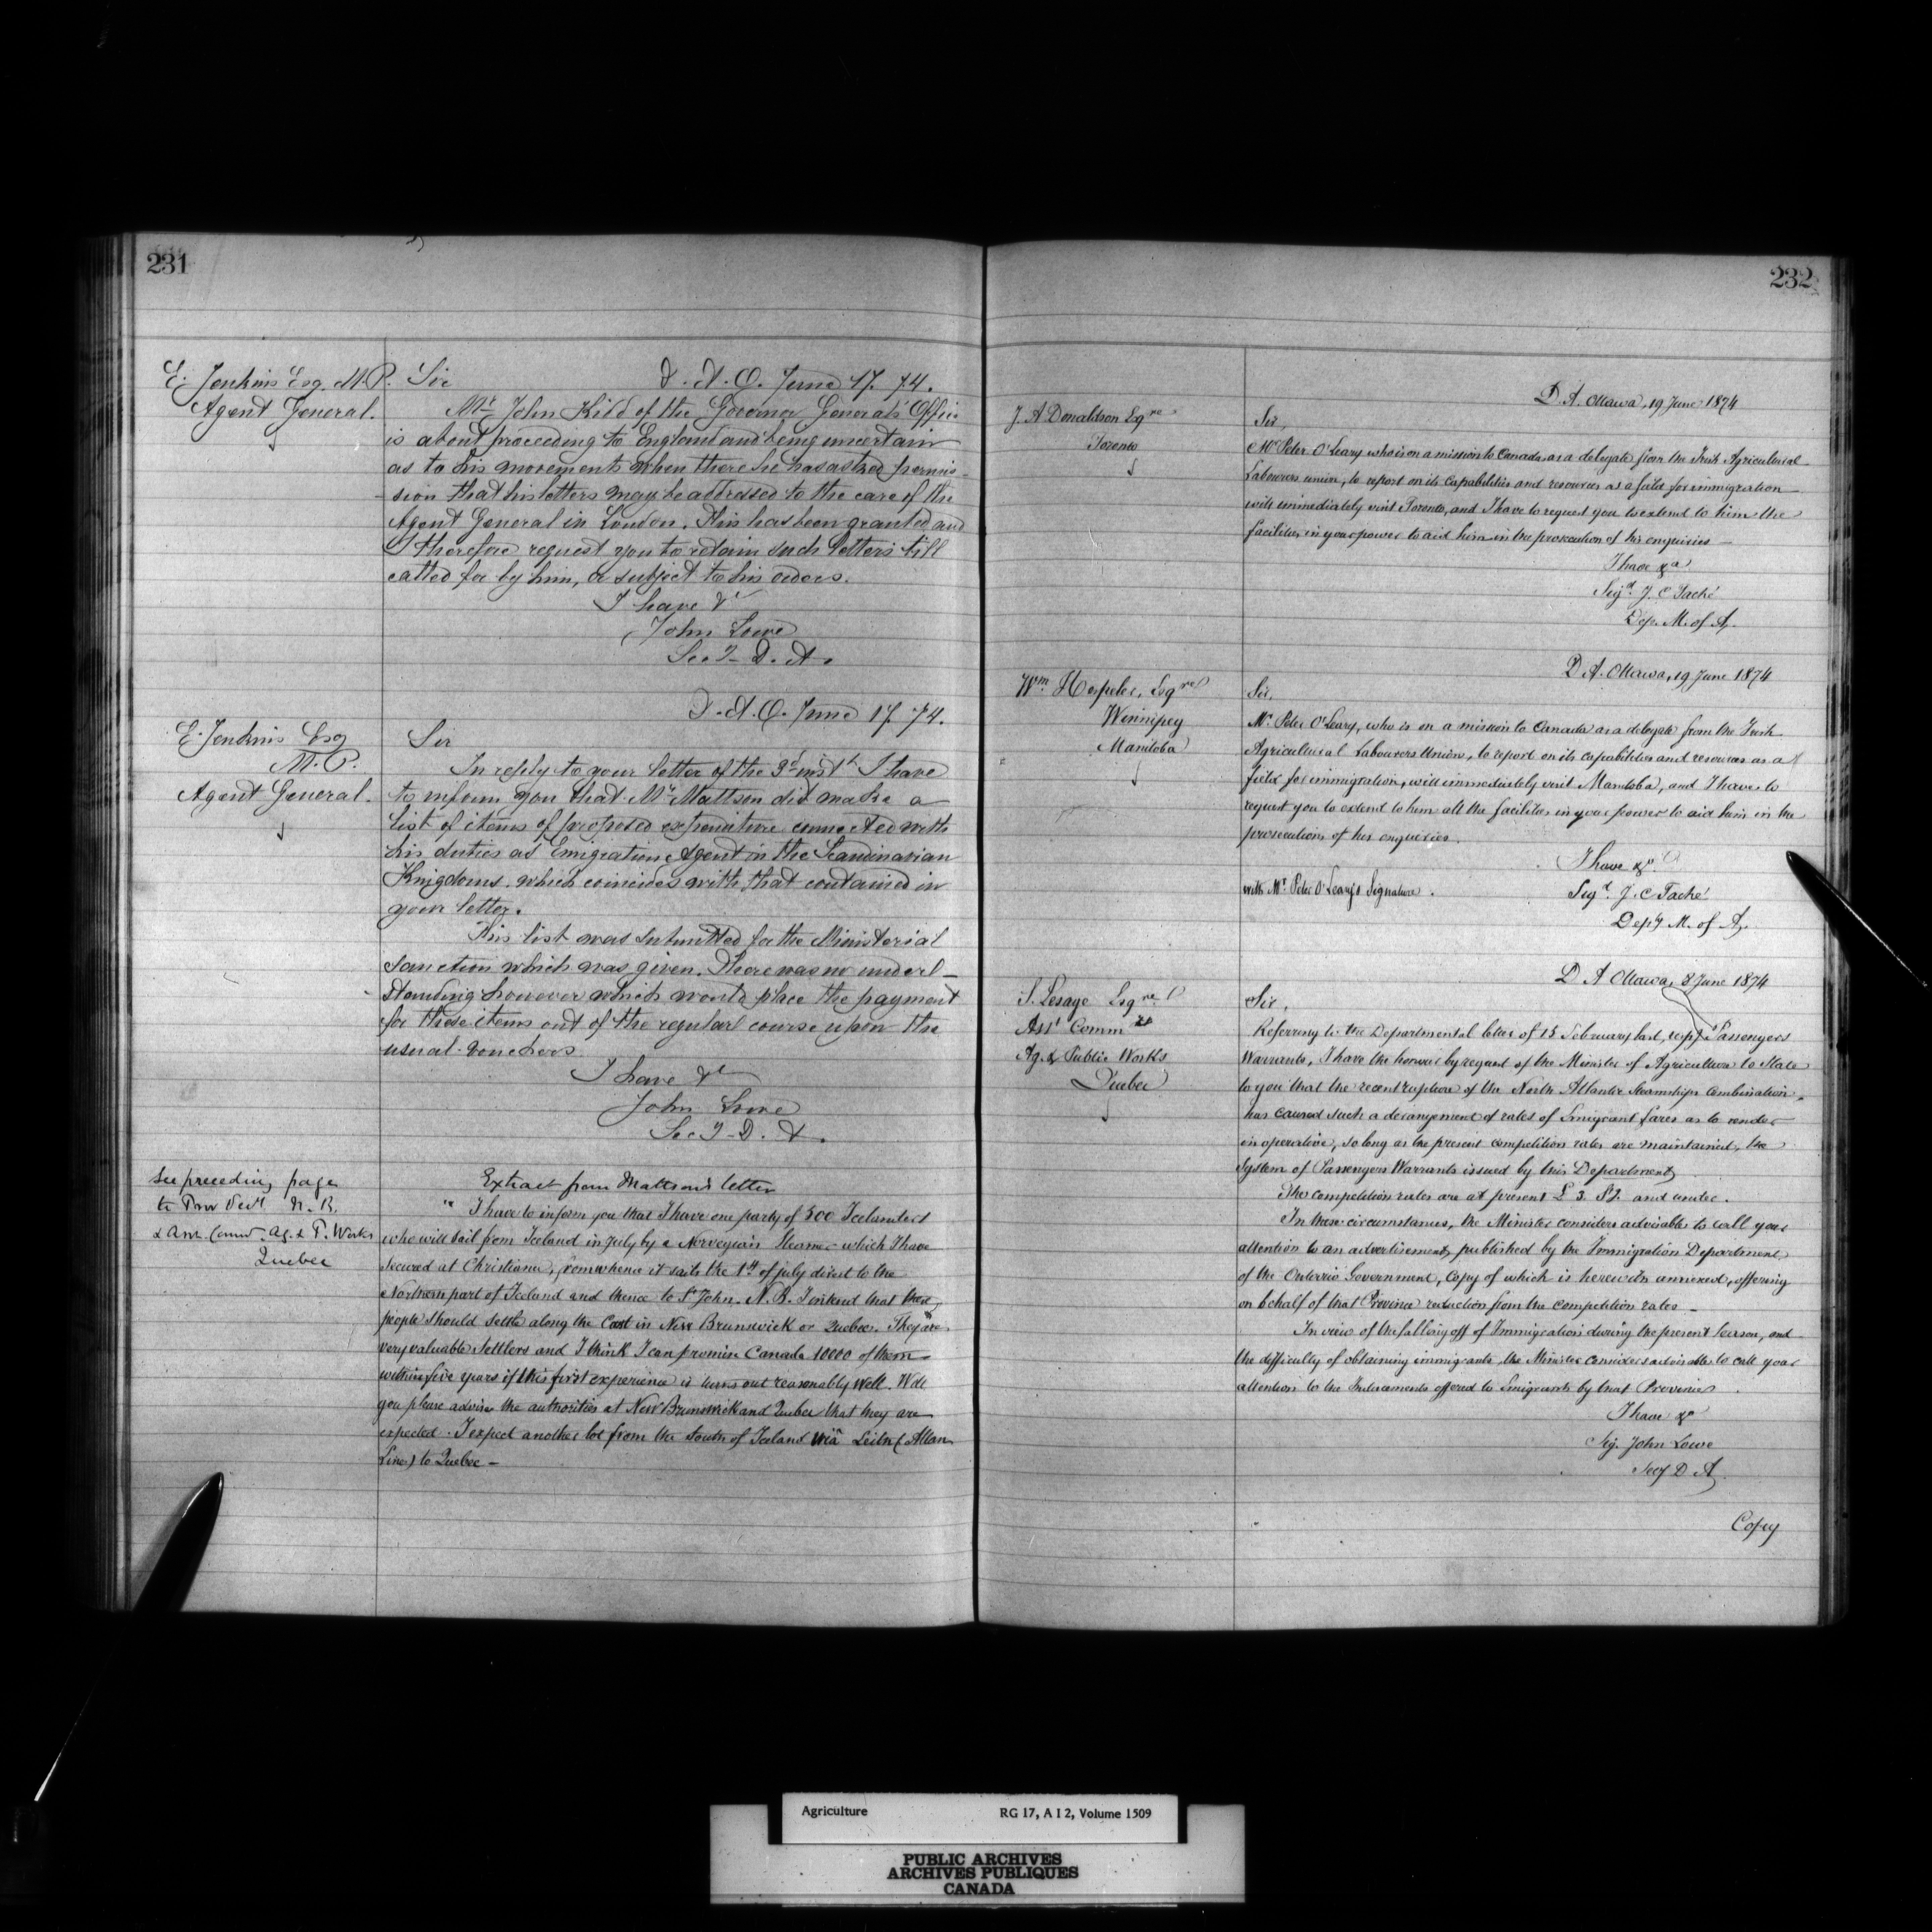 231
E. Jenkins Esq. M.P.
Agent General.
Sir D. A. O. June 17. 74.
Mr John Kidd of the Governor General's Office
is about proceeding to England and being uncertain
as to his movements when there he has asked permis-
sion that his letters may be addressed to the care of the
Agent General in London. This has been granted and
I therefore request you to retain such letters till
called for by him, or subject to his orders.
I have &c
John Lowe
Secy D. A.
D. A. O. June 17. 74.
E. Jenkins Esq
M.P.
Agent General.
Sir
In reply to your letter of the 3d inst I have
to inform you that Mr Mattson did make a
list of items of proposed expenditure connected with
his duties as Emigration Agent in the Scandinavian
Kingdoms. which coincides with that contained in
your letter.
This list was submitted for the Ministerial
sanction which was given. There was no under-
standing however which would place the payment
for these items out of the regular course upon the
usual vouchers
I have &c
John Lowe
Secy D. A.
See preceding page
to Prov Secy N. B.
& Asst Comr Ag. & P. Works
Quebec
Extract from Mattson's letter
" I have to inform you that I have one party of 300 Icelanders
who will sail from Iceland in July by a Norvegian Steamer which I have
secured at Christiana, from whence it sails the 1st of july direct to the
Northern part of Iceland and thence to St John. N. B. I intend that these
people should settle along the Coast in New Brunswick or Quebec. They are
very valuable settlers and I think I can promise Canada 10000 of them
within five years if this first experience is turns out reasonably well. Will
you please advise the authorities at New Brunswick and Quebec that they are
expected. I expect another lot from the South of Iceland viâ Leith (Allan
Line) to Quebec -
232
D. A. Ottawa, 19 June 1874
J. A Donaldson Esqre
Toronto
Sir,
Mr Peter O'Leary who is on a mission to Canada as a delegate from the Irish Agricultural
Labourers union, to report on its capabilities and resources as a field for immigration
will immediately visit Toronto, and I have to request you to extend to him the
facilities in your power to aid him in the prosecution of his enquiries -
I have &a
Sigd J. C Taché
Dep. M. of A.
D. A. Ottawa, 19 June 1874
Wm Hespeler, Esqre
Winnipeg
Manitoba
Sir,
Mr Peter O'Leary, who is on a mission to Canada as a delegate from the Irish
Agricultural Labourers Union, to report on its capabilities and resources as a
field for immigration, will immediately visit Manitoba, and I have to
request you to extend to him all the facilities in your power to aid him in the
prosecution of his enquiries.
I have &a
with Mr Peter O'Leary's Signature.
Sigd J. C Taché
Depy M. of A.
D A Ottawa, 8 June 1874
S. Lesage Esqre
Asst Commr
Ag. & Public Works
Quebec
Sir,
Referring to the Departmental letter of 13 February last, resptg Passengers
Warrants, I have the honour by request of the Minister of Agriculture to State
to you that the recent rupture of the North Atlantic Steamships Combination
has caused such a derangement of rates of Emigrant fares as to render
inoperative, so long as the present competition rates are maintained, the
System of Passengers Warrants issued by this Department
The competition rates are at present £ 3. Stg. and under.
In these circumstances, the Minister considers advisable to call your
attention to an advertisement, published by the Immigration Department
of the Ontario Government, Copy of which is herewith annexed, offering
on behalf of that Province reduction from the competition rates -
In view of the falling off of Immigration during the present Season, and
the difficulty of obtaining immigrants, the Minister considers advisable to call your
attention to the Inducements offered to Emigrants by that Province.
I have &a
Sig. John Lowe
Secy D A
Copy
Agriculture RG 17, A I 2, Volume 1509
PUBLIC ARCHIVES
ARCHIVES PUBLIQUES
CANADA